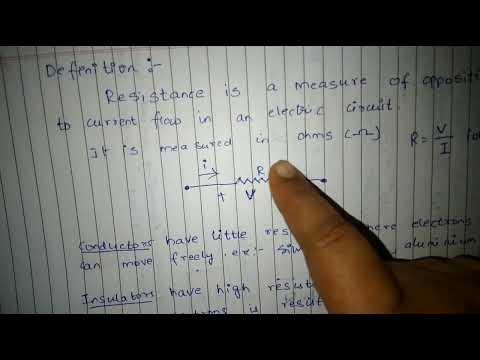 Defenition :-
Resistance is a measure of oppositi
to current flow in an electric circuit.
It is measured in ohms (Ω) R = V/I
i
R
+ V
Conductors have little res here electrons
can move freely. ex:- aluminium
Insulators have high resist
is resist